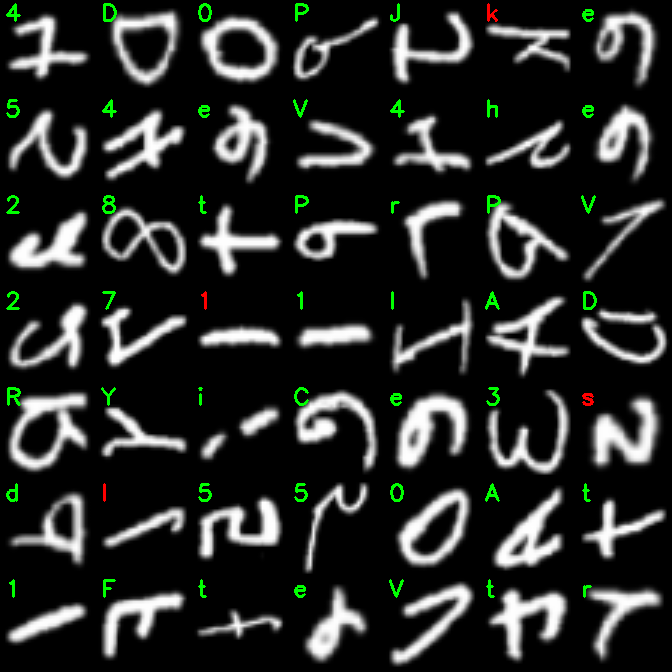 4 D 0 P J k e
5 4 e V 4 h e
2 8 t P r P V
2 7 1 1 I A D
R Y i C e 3 s
d l 5 5 0 A t
1 F t e V t r